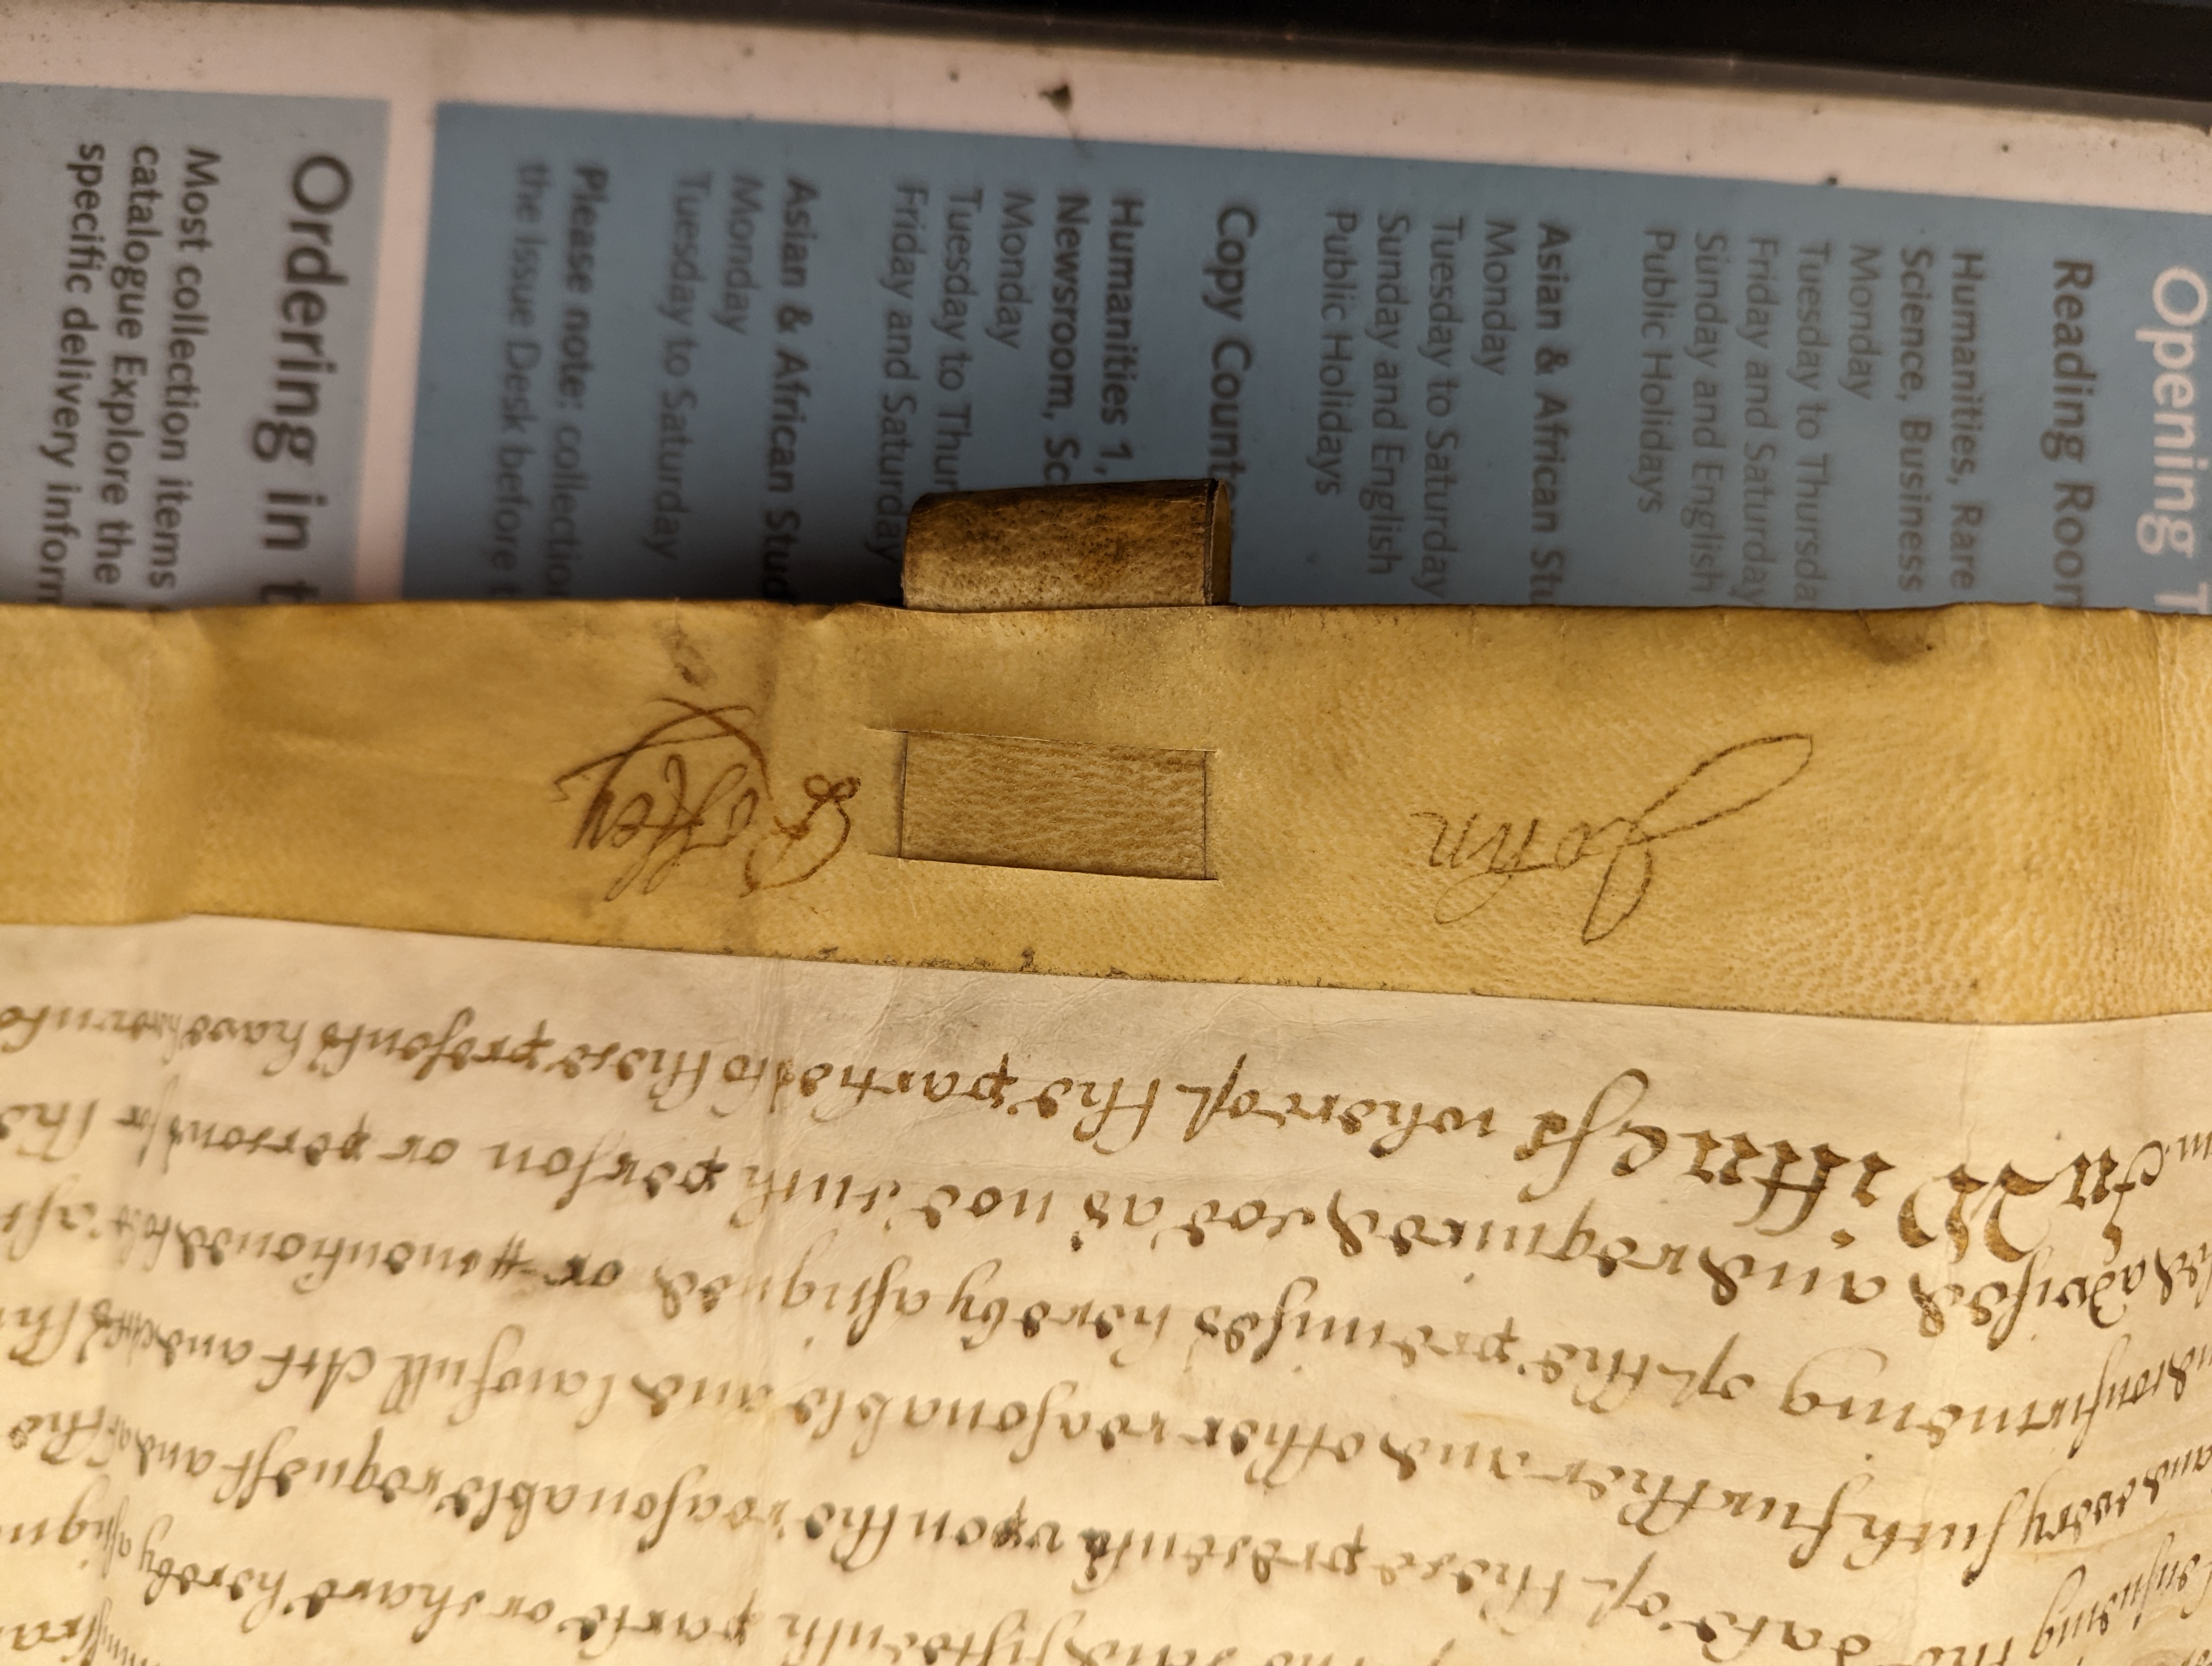 Opening
Reading Room
Humanities, Rare
Science, Business
Monday
Tuesday to Thursda
Friday and Saturday
Sunday and English
Public Holidays
Asian & African Stu
Monday
Tuesday to Saturday
Sunday and English
Public Holidays
Copy Counte
Humanities 1,
Newsroom, Sc
Monday
Tuesday to Thur
Friday and Saturday
Asian & African Stud
Monday
Tuesday to Saturday
Please note: collectio
the Issue Desk before t
Ordering in t
Most collection items
catalogue Explore the
specific delivery inform
the said fifteenth parte or share hereby assign
Ensueing the date of these presents upon the reasonable request and att the
and every such further and other reasonable and lawfull Act and
confirmeing of the premisses hereby assigned or mentioned
advised and required soe as noe such person or persons for the
In Wittness whereof the parties to these presents have hereunto
John